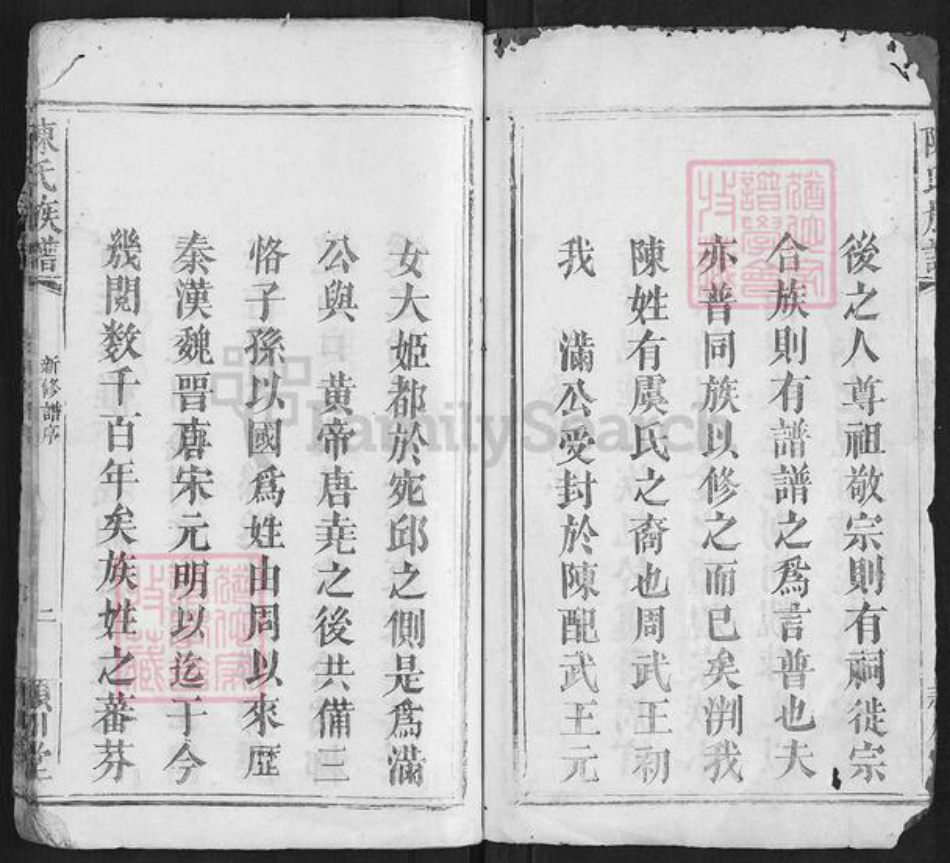 後之人尊祖敬宗則有祠徙宗
合族則有譜譜之為言普也夫
亦普同族以修之而已矣溯我
陳姓有虞氏之裔也周武王初
我 滿公受封於陳配武王元
女大姬都於宛邱之側是爲滿
公與 黃帝唐堯之後共備三
恪子孫以國爲姓由周以來歷
秦漢魏晋唐宋元明以迄于今
幾閱数千百年矣族姓之蕃芬
陳氏族譜
新修譜序
二
潁川堂
FamilySearch